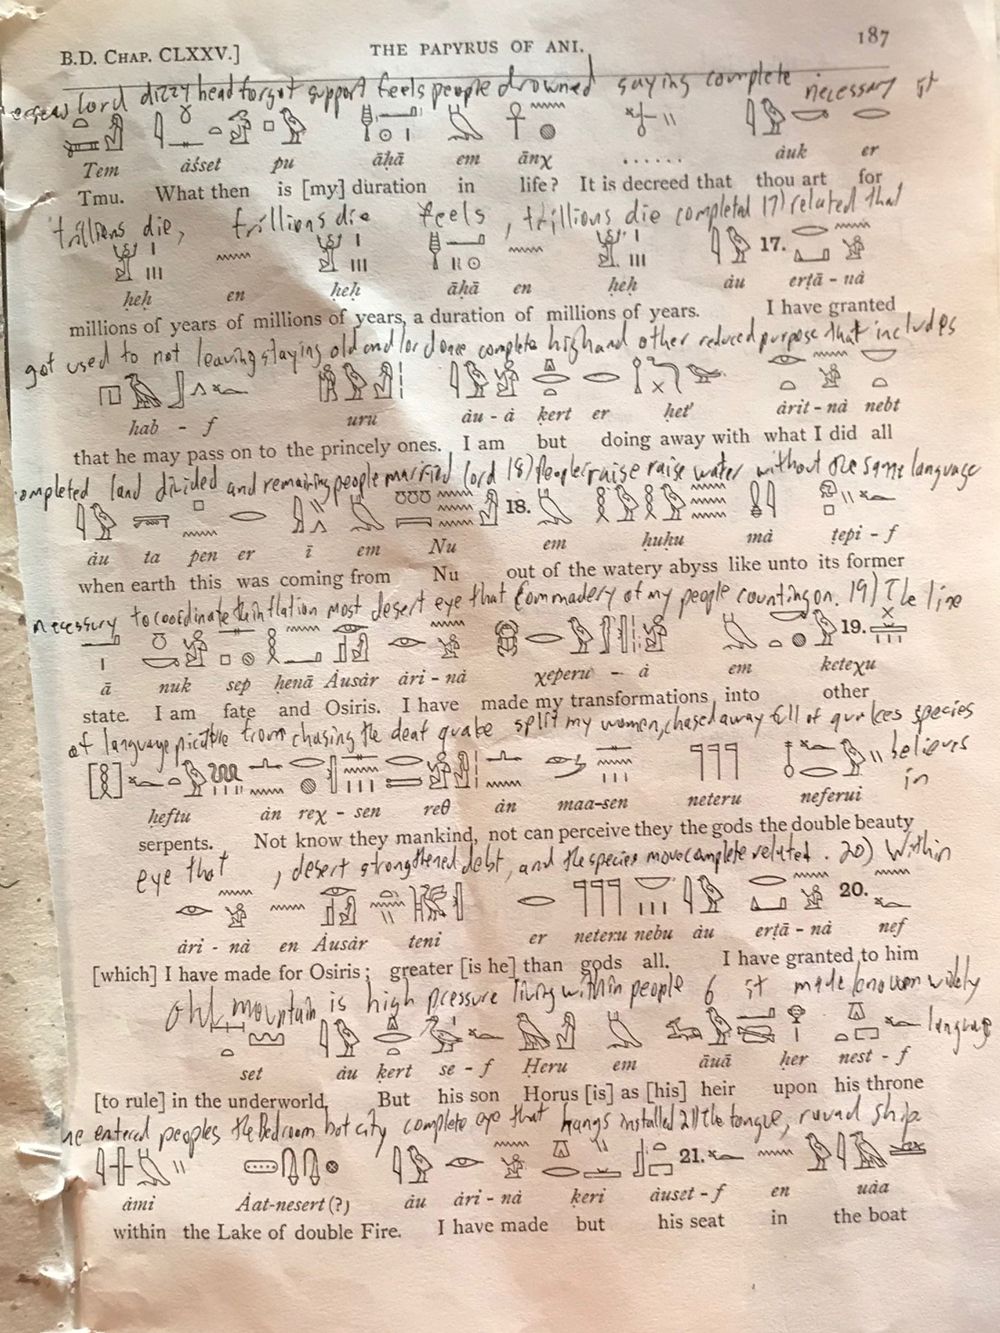 B.D. CHAP. CLXXV.] THE PAPYRUS OF ANI. 187
lord dizzy head forgot support feels people drowned saying complete necessary it
Tem àśset pu āḥā em ānχ ...... àuk er
Tmu. What then is [my] duration in life? It is decreed that thou art for
trillions die, trillions die feels, trillions die completed 17) related that
17.
ḥeḥ en ḥeḥ āḥā en ḥeḥ àu erṭā - nà
millions of years of millions of years, a duration of millions of years. I have granted
got used to not leaving staying old and lord once complete high and other reduced purpose that includes
hab - f uru àu - à ḳert er ḥeṭ' àrit - nà nebt
that he may pass on to the princely ones. I am but doing away with what I did all
completed land divided and remaining people married lord 18) People raise raise water without the same language
18.
àu ta pen er ī em Nu em ḥuḥu mà ṭepi - f
when earth this was coming from Nu out of the watery abyss like unto its former
necessary to coordinate the inflation most desert eye that of my people counting on. 19) The line
19.
ā nuk sep ḥenā Àusàr àri - nà χeperu - à em keteχu
state. I am fate and Osiris. I have made my transformations into other
of language picture from chasing the deat quake split my women, chased away full of quakes species believes in
ḥeftu àn reχ - sen reθ àn maa-sen neteru neferui
serpents. Not know they mankind, not can perceive they the gods the double beauty
eye that , desert strengthened debt, and the species move complete related. 20) Within
20.
àri - nà en Àusàr teni er neteru nebu àu erṭā - nà nef
[which] I have made for Osiris; greater [is he] than gods all. I have granted to him
mountain is high pressure living within people 6 it made known widely language
set àu ḳert se - f Ḥeru em āuā ḥer nest - f
[to rule] in the underworld. But his son Horus [is] as [his] heir upon his throne
he entered peoples the Bedroom hot city complete eye that hangs installed 21) the tongue, round ship
21.
àmi Àat-nesert (?) àu àri - nà ḳeri àuset - f en uàa
within the Lake of double Fire. I have made but his seat in the boat